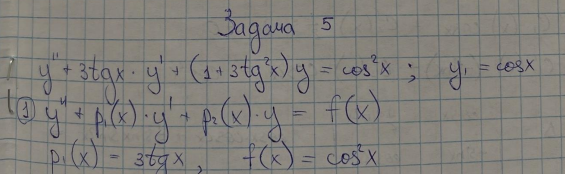 Задача 5
y'' + 3tgx · y' + (1+3tg²x) y = cos²x ; y₁ = cosx
① y'' + p₁(x) · y' + p₂(x) · y = f(x)
p₁(x) = 3tgx, f(x) = cos²x